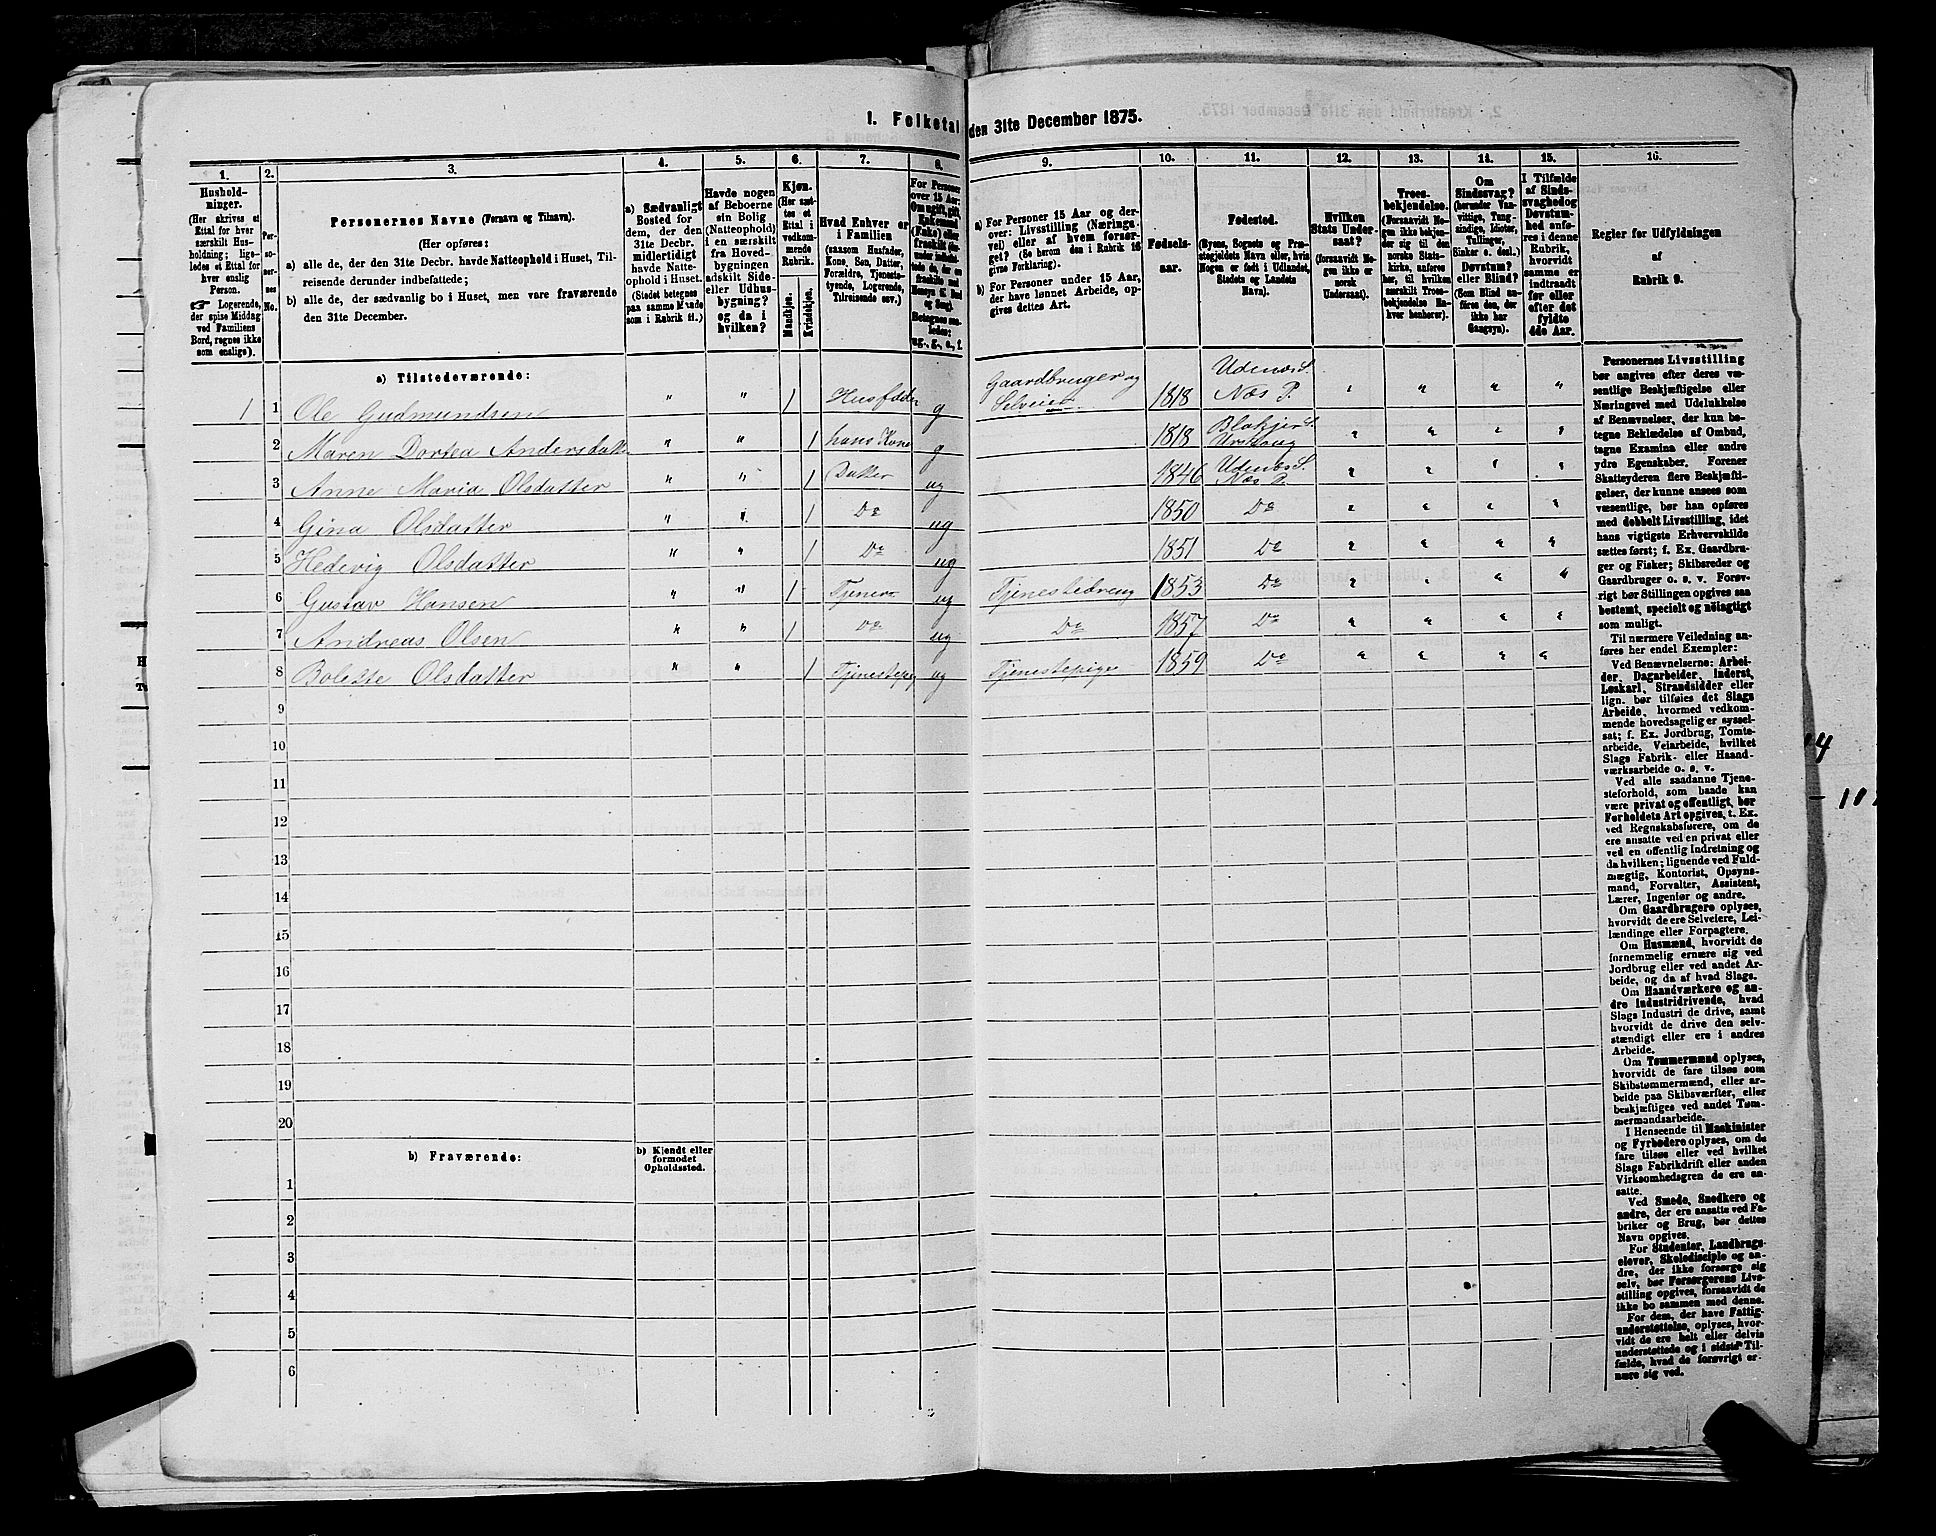 1. Folketal den 31te December 1875.
1. 2. 3. 4. 5. 6. 7. 8. 9. 10. 11. 12. 13. 14. 15. 16.
Hushold-
ninger.
(Her skrives et
Ettal for hver
særskilt Hus-
holdning; lige-
ledes et Ettal for
hver enslig
Person.
☛ Logerende,
der spise Middag
ved Familiens
Bord, regnes ikke
som enslige).
Per-
so-
ner-
nes
No.
Personernes Navne (Fornavn og Tilnavn).
(Her opføres:
a) alle de, der den 31te Decbr. havde Natteophold i Huset, Til-
reisende derunder indbefattede;
b) alle de, der sædvanlig bo i Huset, men vare fraværende
den 31te December.
a) Sædvanligt
Bosted for
dem, der den
31te Decbr.
midlertidigt
havde Natte-
ophold i Huset.
(Stedet betegnes
paa samme Maade
som i Rubrik 11.)
Havde nogen
af Beboerne
sin Bolig
(Natteophold)
i en særskilt
fra Hoved-
bygningen
adskilt Side-
eller Udhus-
bygning?
og da i
hvilken?
Kjøn.
(Her sæt-
tes et
Ettal i
vedkom-
mende
Rubrik.
Mandkjøn.
Kvindekjøn.
Hvad Enhver er
i Familien
(saasom Husfader,
Kone, Søn, Datter,
Forældre, Tjenests-
tyende, Logerende,
Tilreisende osv.)
For Personer
over 15 Aar:
Om ugift, gift,
Enkemand
(Enke) eller
fraskilt
Betegnes saa-
ledes:
ug., g., e., f.
a) For Personer 15 Aar og der-
over: Livsstilling (Nærings-
vei) eller af hvem forsør-
get? (Se herom den i Rubrik 16
givne Forklaring).
b) For Personer under 15 Aar,
der have lønnet Arbeide, op-
gives dettes Art.
Fødsels-
aar.
Fødested.
(Byens, Sognets og Præ-
stegjeldets Navn eller, hvis
Nogen er født i Udlandet,
Stedets og Landets
Navn).
Hvilken
Stats Under-
saat?
(forsaavidt No-
gen ikke er
norsk
Undersaat).
Troes-
bekjendelse.
(Forsaavidt No-
gen ikke bekjen-
der sig til den
norske Stats-
kirke, anføres
her, til hvilken
særskilt Troes-
bekjendelse En-
hver henhører).
Om
Sindssvag?
(herunder Van-
vittige, Tung-
sindige, Idioter,
Tullinger,
Sinker o. desl.)
Døvstum?
eller Blind?
(Som Blind an-
føres den, der
ikke har
Gangsyn).
I Tilfælde
af Sinds-
svaghed og
Døvstum-
hed anfø-
res i denne
Rubrik,
hvorvidt
samme er
indtraadt
før eller
efter det
fyldte
4de Aar.
Regler for Udfyldningen
af
Rubrik 9.
a) Tilstedeværende:
1 1 Ole Gudmundsen " " 1 Husfader g Gaardbruger og Selveier 1818 Udenæs S. Næs P. " " " "
2 Maren Dortea Andersdatt. " " 1 hans Kone g 1818 Blakjer S. Urskoug " " " "
3 Anne Maria Olsdatter " " 1 Datter ug 1846 Udenæs S. Næs P. " " " "
4 Gina Olsdatter " " 1 Do ug 1850 Do " " " "
5 Hedevig Olsdatter " " 1 Do ug 1851 Do " " " "
6 Gustav Hansen " " 1 Tjener ug Tjenestedreng 1853 Do " " " "
7 Andreas Olsen " " 1 Do ug Do 1857 Do " " " "
8 Bolette Olsdatter " " 1 Tjenestepig ug Tjenestepige 1859 Do " " " "
9
10
11
12
13
14
15
16
17
18
19
20
b) Fraværende:
b) Kjendt eller
formodet
Opholdssted.
1
2
3
4
5
6
Personernes Livsstilling
bør angives efter deres væ-
sentlige Beskjæftigelse eller
Næringsvei med Udelukkelse
af Benævnelser, der kun be-
tegne Beklædelse af Ombud,
tagne Examina eller andre
ydre Egenskaber. Forener
Skatteyderen flere Beskjæfti-
gelser, der kunne ansees som
væsentlige, bør han opføres
med dobbelt Livsstilling, idet
hans vigtigste Erhvervskilde
sættes først; f. Ex. Gaardbru-
ger og Fisker; Skibsreder og
Gaardbruger o. s. v. Forøv-
rigt bør Stillingen opgives saa
bestemt, specielt og nøiagtigt
som muligt.
Til nærmere Veiledning an-
føres her endel Exempler:
Ved Benævnelserne: Arbei-
der, Dagarbeider, Inderst,
Løskarl, Strandsidder eller
lign. bør tilføies det Slags
Arbeide, hvormed vedkom-
mende hovedsagelig er syssel-
sat; f. Ex. Jordbrug, Tomte-
arbeide, Veiarbeide, hvilket
Slags Fabrik- eller Haand-
værksarbeide o. s. v.
Ved alle saadanne Tjene-
steforhold, som baade kan
være privat og offentligt, bør
Forholdets Art opgives, t. Ex.
ved Regnskabsførere, om de
ere ansatte ved en privat eller
ved en offentlig Indretning og
da hvilken; lignende ved Fuld-
mægtig, Kontorist, Opsyns-
mand, Forvalter, Assistent,
Lærer, Ingeniør og andre.
Om Gaardbrugere oplyses,
hvorvidt de ere Selveiere, Lei-
lændinge eller Forpagtere.
Om Husmænd, hvorvidt de
fornemmelig ernære sig ved
Jordbrug eller ved andet Ar-
beide, og da af hvad Slags.
Om Haandværkere og an-
dre Industridrivende, hvad
Slags Industri de drive, samt
hvorvidt de drive den selv-
stændigt eller ere i andres
Arbeide.
Om Tømmermænd oplyses,
hvorvidt de fare tilsøs som
Skibstømmermænd, eller ar-
beide paa Skibsværfter, eller
beskjæftiges ved andet Tøm-
mermandsarbeide.
I Henseende til Maskinister
og Fyrbødere oplyses, om de
fare tilsøs eller ved hvilket
Slags Fabrikdrift eller anden
Virksomhedsgren de ere an-
satte.
Ved Smede, Snedkere og
andre, der ere ansatte ved Fa-
briker og Brug, bør dettes
Navn opgives.
For Studenter, Landbrugs-
elever, Skoledisciple og an-
dre, der ikke forsørge sig
selv, bør Forsørgerens Livs-
stilling opgives, forsaavidt de
ikke bo sammen med denne.
For dem, der have Fattig-
understøttelse, oplyses, hvor-
vidt de ere helt eller delvis
understøttede og i sidste Til-
fælde, hvad de forøvrigt er-
nære sig ved.